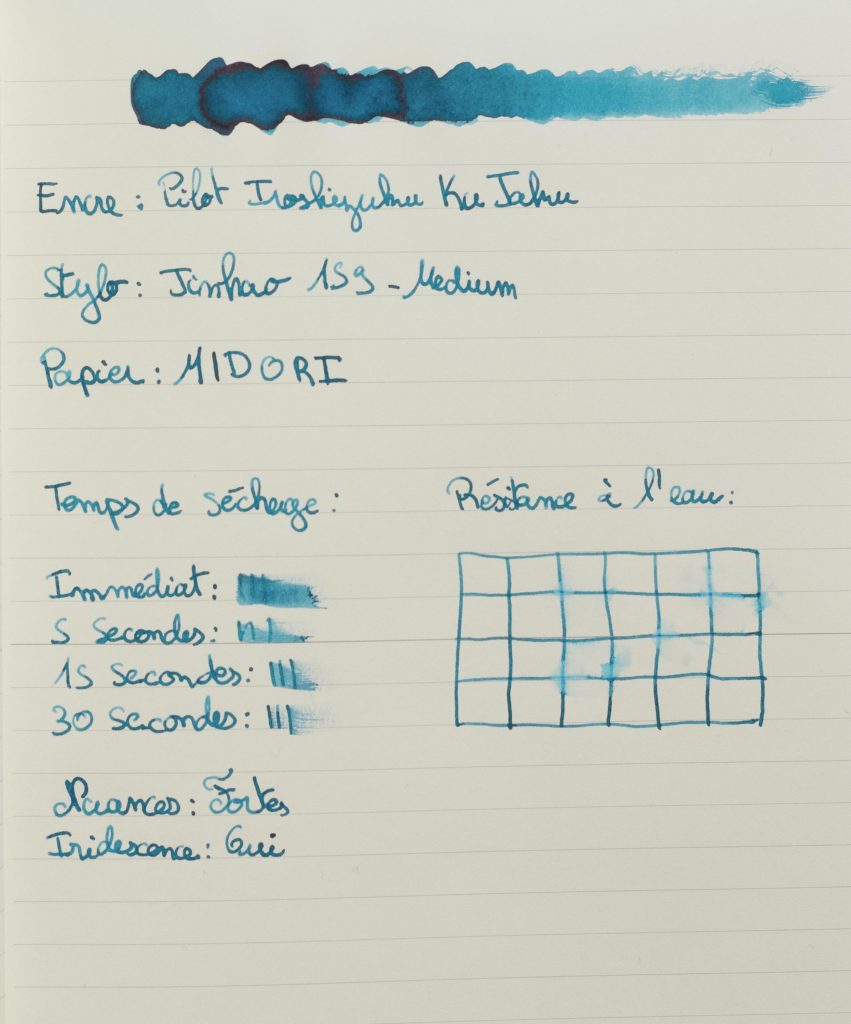 Encre : Pilot Iroshizuku Ku Jaku
Stylo : Jinhao 159 - Medium
Papier : MIDORI
Temps de séchage :
Résistance à l'eau :
Immédiat :
5 secondes :
15 secondes :
30 secondes :
Nuances : Fortes
Iridescence : Oui